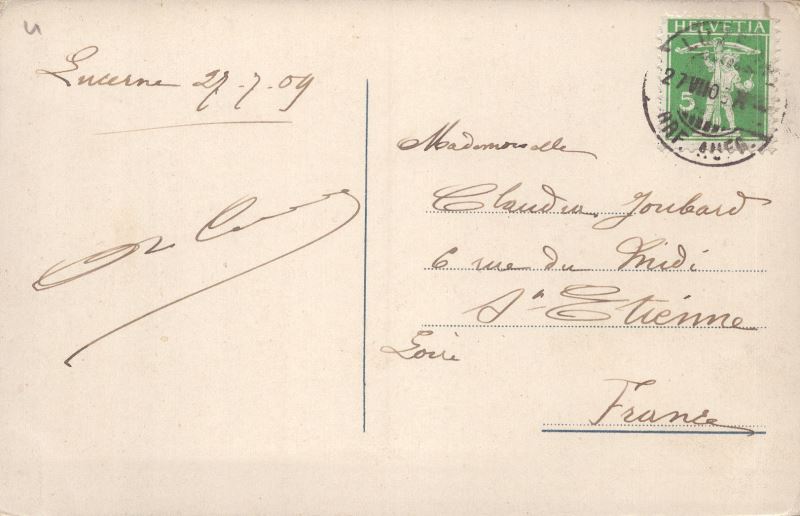 Lucerne 27.7.09
HELVETIA
5
27 VII 09
Mademoiselle
Claudia Joubard
6 rue du Midi
St Etienne
Loire
France